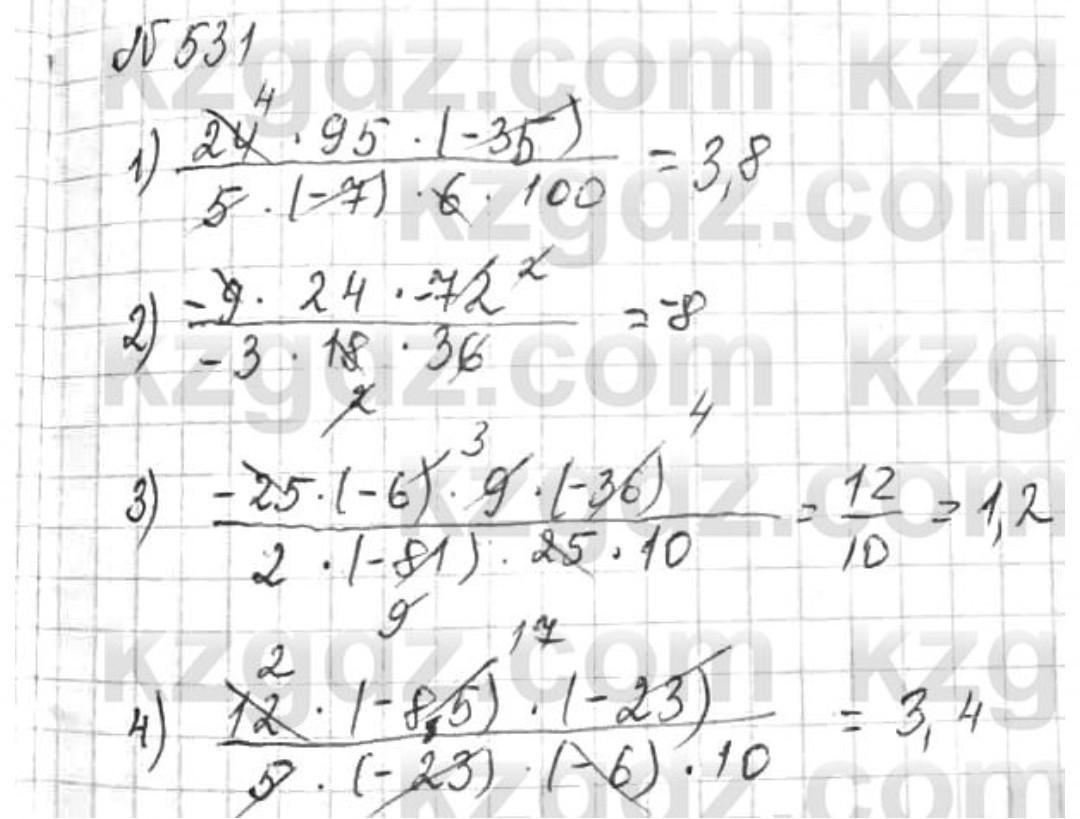 № 531
1) 24 4 · 95 · (-35) / 5 · (-7) · 6 · 100 = 3,8
2) -9 · 24 · -72 2 / -3 · 18 2 · 36 = -8
3) -25 · (-6) 3 · 9 · (-36) 4 / 2 · (-81) 9 · 25 · 10 = 12/10 = 1,2
4) 12 2 · (-8,5) 17 · (-23) / 5 · (-23) · (-6) · 10 = 3,4
kzgdz.com kzgdz.com
kzgdz.com
kzgdz.com kzgdz.com
kzgdz.com
kzgdz.com kzgdz.com
kzgdz.com